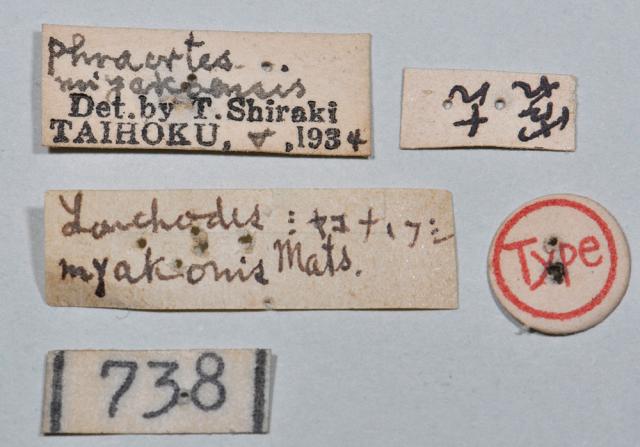 Phraortes
miyakoensis
Det. by T. Shiraki
TAIHOKU, V, 1934
Lonchodes
myakonis Mats.
Type
738